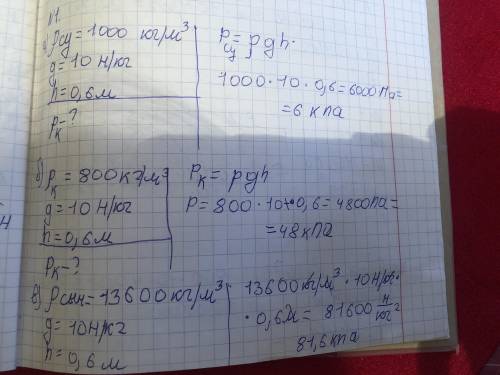 №1.
а) ρсу = 1000 кг/м³
g = 10 Н/кг
h = 0,6 м
Pк - ?
P = ρgh.
1000 · 10 · 0,6 = 6000 Па =
= 6 кПа
б) Pк = 800 кг/м³
g = 10 Н/кг
h = 0,6 м
Pк - ?
Pк = ρgh
P = 800 · 10 · 0,6 = 4800 Па =
= 48 кПа
в) ρ = 13600 кг/м³
g = 10 Н/кг
h = 0,6 м
13600 кг/м³ · 10 Н/кг ·
· 0,6 м = 81600 Н/кг²
81,6 кПа
н